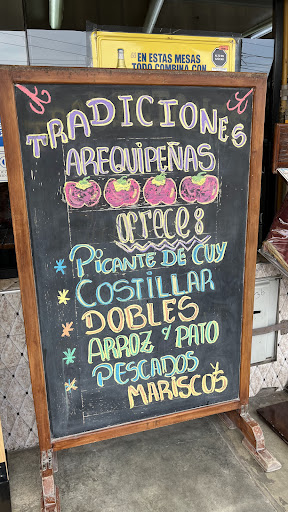 EN ESTAS MESAS
TODO COMBINA CON
TRADICIONES
AREQUIPEÑAS
OFRECE:
* PICANTE DE CUY
* COSTILLAR
* DOBLES
* ARROZ Y PATO
* PESCADOS Y
MARISCOS